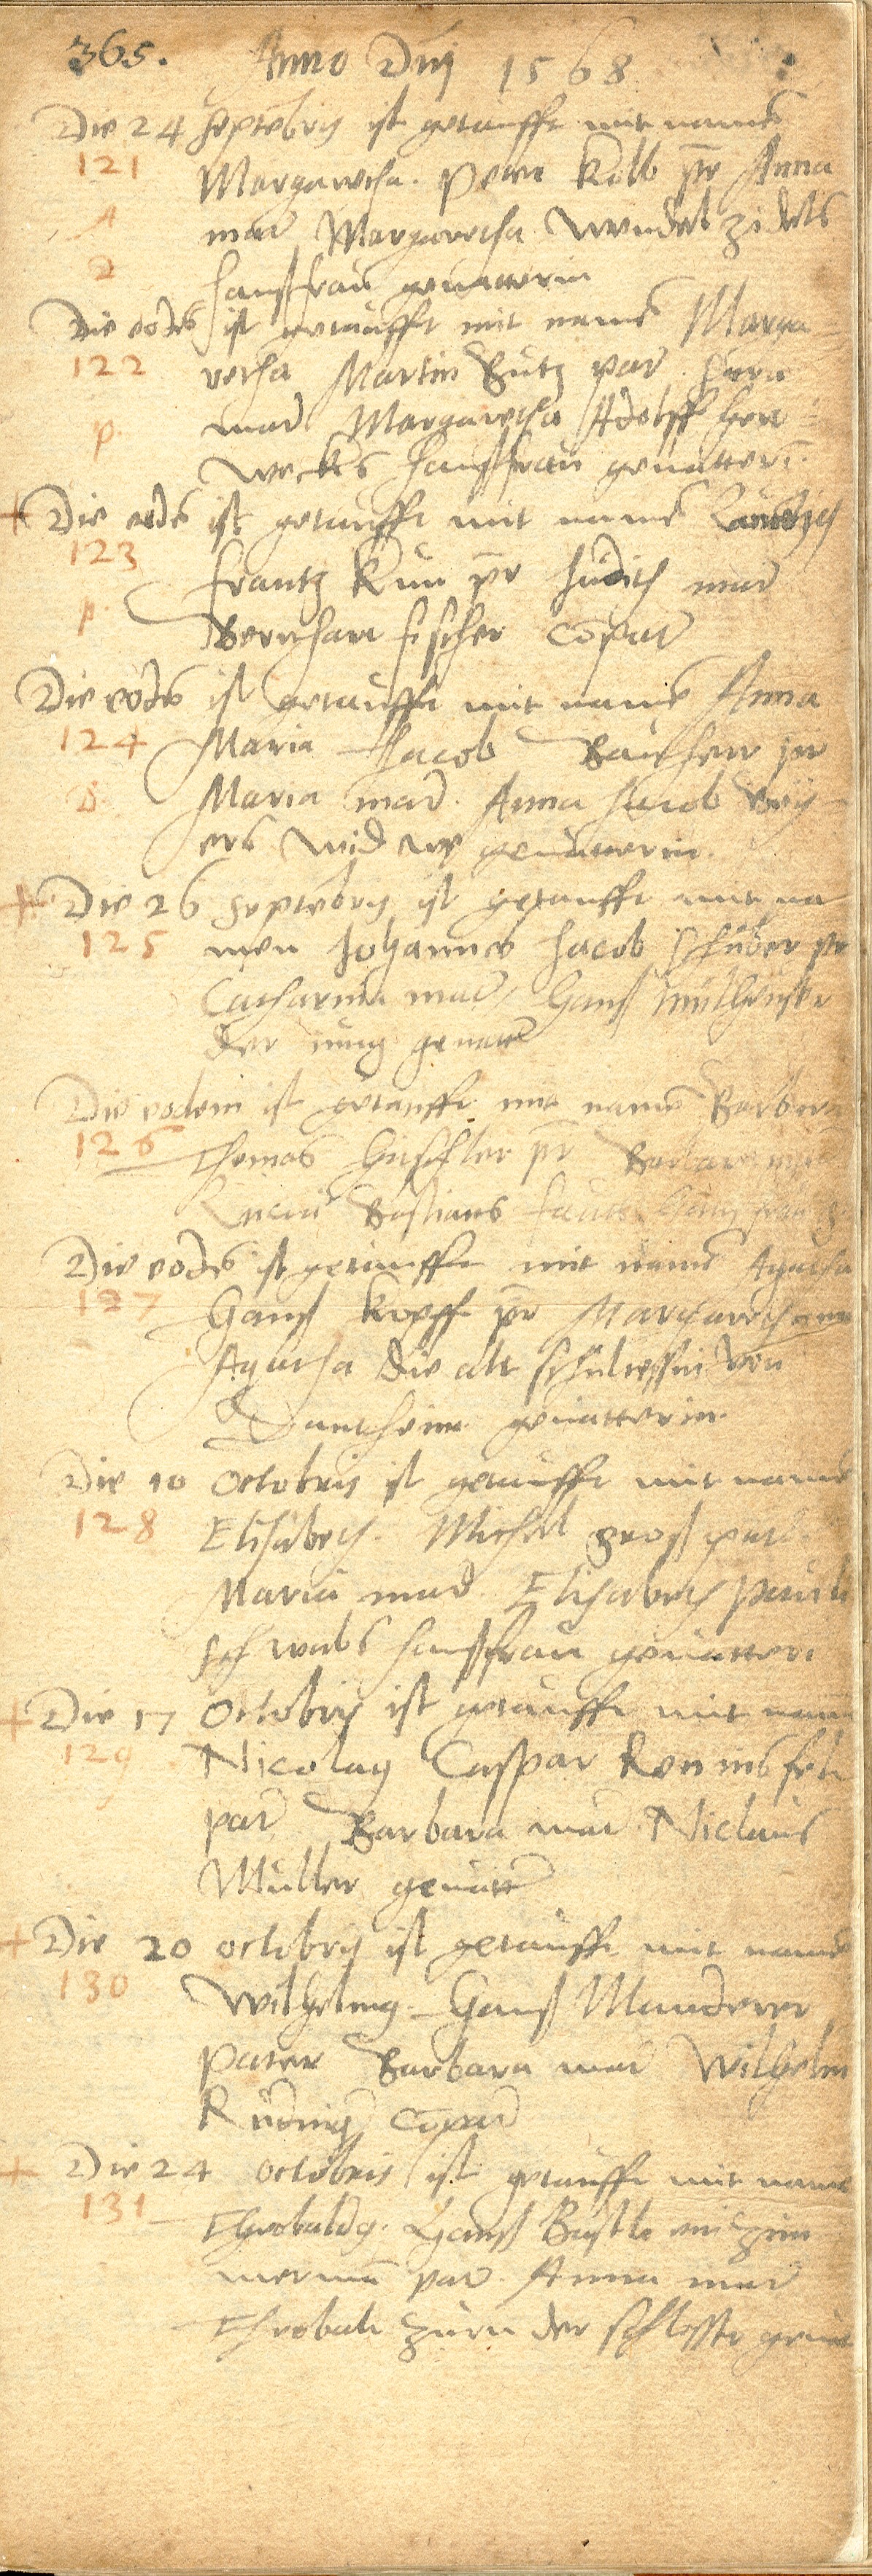 365. Anno Dnj 1568
Die 24 Septebris ist getaufft mit name
121 Margaretha. Peter Kolb pr Anna
mar Margaretha Wendel Zidels
2 hausfrau gevatterin
Die eode ist getaufft mit name Marga
122 retha Martin Butz par Sara
p. mar Margaretha Adolff Her
weckes hausfrau gevatteri
+ Die eode ist getaufft mit name
123 Frantz Kun pr Judith mar
p. Bernhart Fischer copar
Die eode ist getaufft mit name Anna
124 Maria Jacob pr
Maria mar. Anna Jacob
ers widwe gevatterin.
+ Die 26 Septebris ist getaufft mit na
125 men Johannes Jacob Schuber pr
Catharina mar, Hans
der jung gevatt
Die eodem ist getaufft mit name Barbara
126 Thomas pr Barbara
Bastians
Die eode ist getaufft mit name Agatha
127 Hans Kopff pr Margareth
Agatha die alt schultessin von
gevatterin
Die 10 Octobris ist getaufft mit name
128 Elisabeth. Michel Gros pat.
Maria mar Elisabeth Pauli
schwabs hausfrau gevatteri
+ Die 17 Octobris ist getaufft mit name
129 Nicolaus Caspar
par Barbara mar Niclaus
Muller gevatt
+ Die 20 octobris ist getaufft mit name
130 Wilhelmus Hans Manderer
pater Barbara mar Wilhelm
copar
+ Die 24 octobris ist getaufft mit name
131 Theobaldus. Hans ein zim
merma par. Anna mar
Theobalt Zurn der schlosser gevat